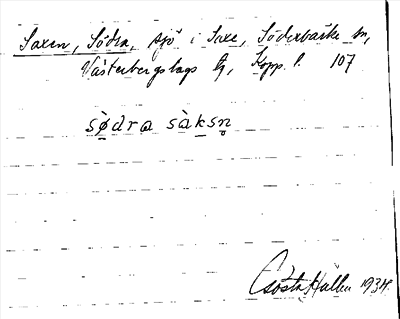 Saxen, Södra, sjö i Saxe, Söderbärke sn,
Västerbergslags tg, Kopp. l. 107
sø̀dra sàksn̥
Gösta Hallén 1934.